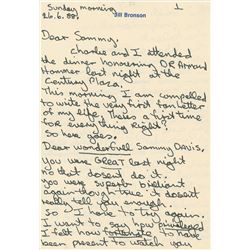 Sunday morning 1
26.6.88. Jill Bronson
Dear Sammy,
Charlie and I attended
the dinner honouring DR Armand
Hammer last night at the
Century Plaza,
This morning I am compelled
to write the very first fan letter
of my life. Theres a first time
for everything Right?
So here goes,
Dear wonderfuel Sammy Davis,
You were GREAT last night
no that dosent do it.
you were superb brilliant
again though true it doesn't
really tell you enough.
so I have to try again.
I want to say how priviledged
I felt how fortunate to have
been present to watch you